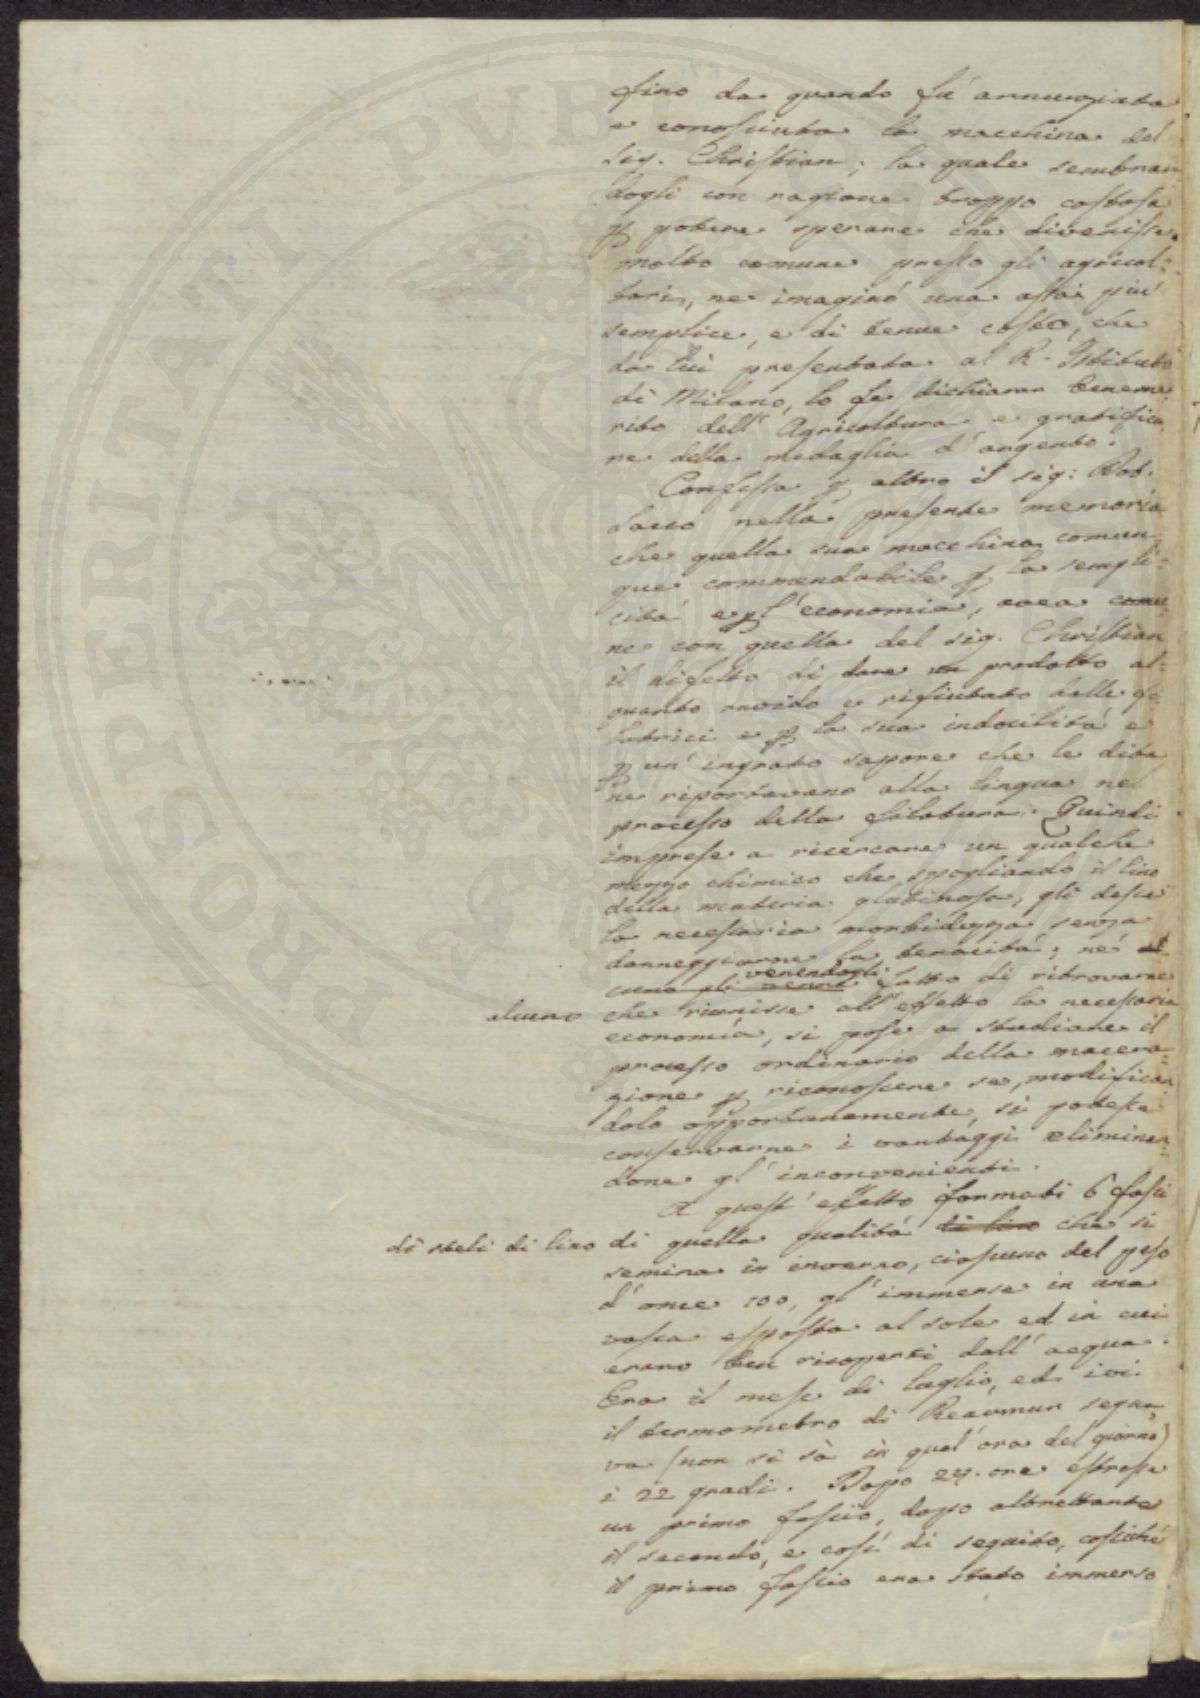 fino da quando fu' annunziata
e conosciuta la macchina del
Sig. Christian; la quale sembran
dogli con ragione troppo costosa
p potere sperare che divenisse
molto comune presso gli agricol:
tori, ne imaginò una assai più
semplice, e di tenue costo, che
da lui presentata al R. Istituto
di Milano, lo fe' dichiarar beneme:
rito dell' Agricoltura e gratifica
re della medaglia d'argento.
Confessa p altro il sig: Bot.
che quella sua macchina comun:
que commendabile p la sempli:
cità e p l'economia, avea comu
ne con quella del sig. Christian
il difetto di dare un prodotto al:
quanto ruvido e rifiutato dalle fi:
latrici e p la sua indocilità e
p un' ingrato sapore che le dita
ne riportavano alla lingua nel
processo della filatura. Quindi
imprese a ricercare un qualche
mezzo chimico che spogliando il lino
della materia glutinosa, gli desse
la necessaria morbidezza senza
danneggiarne la tenacità; né al
cuno gli venne venendogli fatto di ritrovarne
alcuno che riunisse all'effetto la necessaria
economia, si pose a studiare il
processo ordinario della macera:
zione p riconoscere se, modifican
dolo opportunamente, si potesse
conservarne i vantaggi eliminan:
done gl'inconvenienti.
A quest' effetto formati 6 fasci
di steli di lino di quella qualità di lino che si
semina in inverno, ciascuno del peso
d'once 100, gl'immerse in una
vasca esposta al sole ed in cui
erano ben ricoperti dall'acqua.
Era il mese di luglio, ed ivi
il termometro di Reaumur segna
va (non si sà in qual'ora del giorno)
i 22 gradi. Dopo 24. ore estrasse
un primo fascio, dopo altrettante
il secondo, e così di seguito, cosiché
il primo fascio era stato immerso